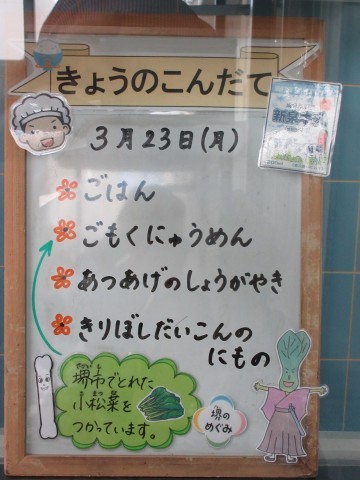 きょうのこんだて
3月23日(月)
ごはん
ごもくにゅうめん
あつあげのしょうがやき
きりぼしだいこんの
にもの
堺市でとれた
小松菜を
つかっています。
堺の
めぐみ